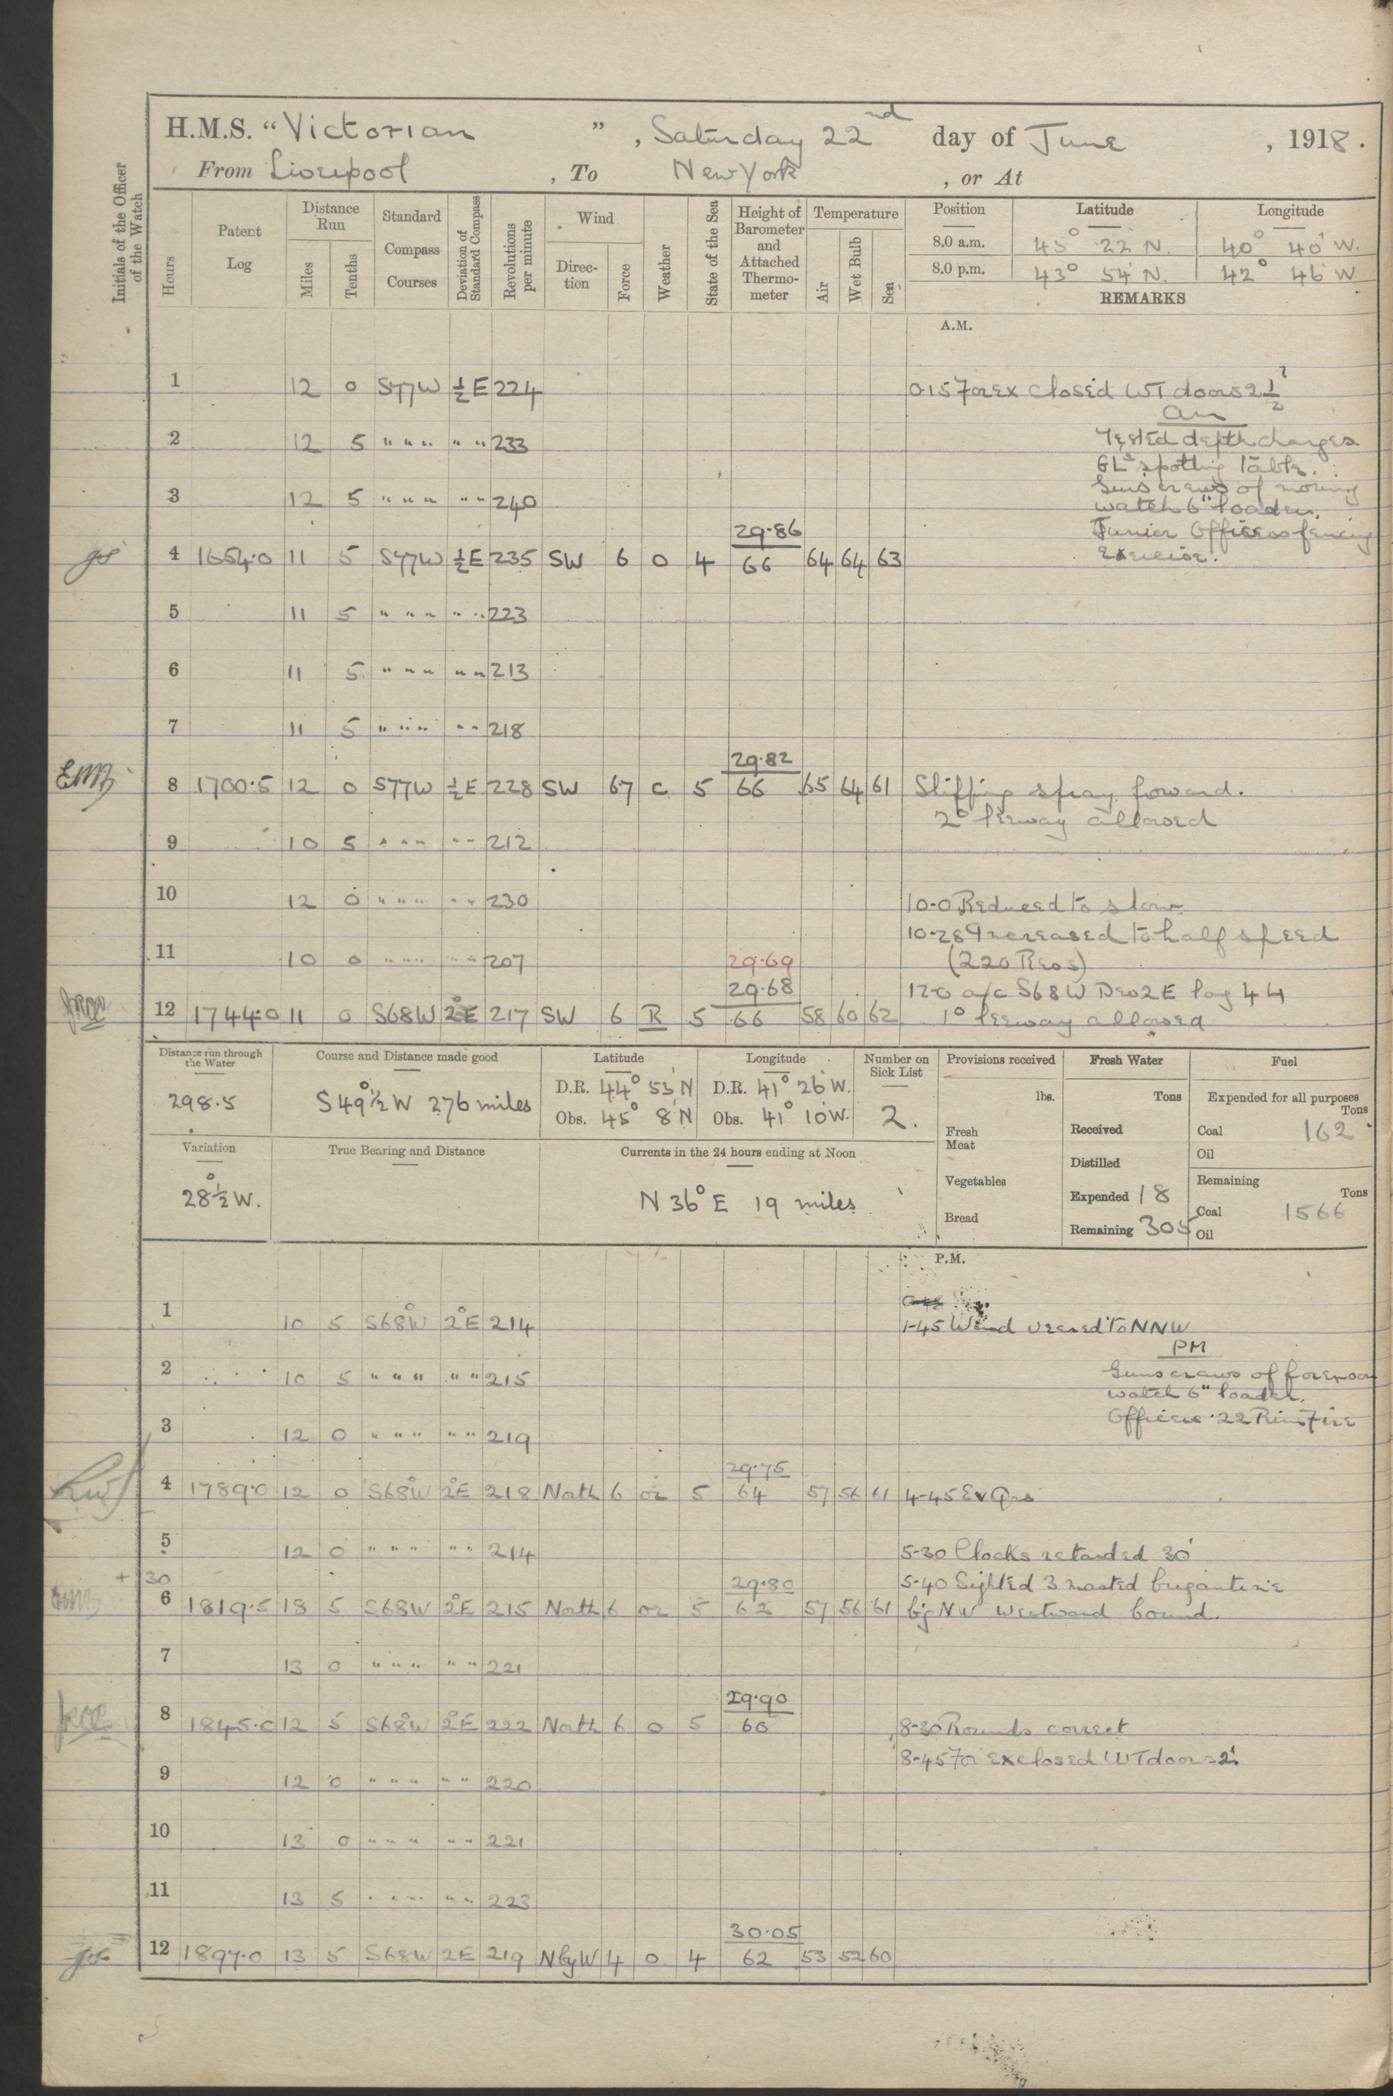 H.M.S. "Victorian", Saturday 22nd day of June, 1918.
From Liverpool, To New York, or At
Initials of the Officer of the Watch
Hours
Patent Log
Distance Run
Miles
Tenths
Standard Compass Courses
Deviation of Standard Compass
Revolutions per minute
Wind
Direction
Force
Weather
State of the Sea
Height of Barometer and Attached Thermometer
Temperature
Air
Wet Bulb
Sea
Position Latitude Longitude
8.0 a.m. 45° 22' N. 40° 40' W.
8.0 p.m. 43° 54' N. 42° 46' W
REMARKS
A.M.
1 12 0 S77W ½E 224 0.15 For ex closed WT doors 2½'
AM
2 12 5 " " " " " 233 Tested depth charges
GLs spotting Table.
3 12 5 " " " " " 240 Guns crews of morning
watch 6" loader.
29.86 Junior Officers fencing
4 1654.0 11 5 S77W ½E 235 SW 6 O 4 66 64 64 63 exercise.
5 11 5 " " " " " 223
6 11 5 " " " " " 213
7 11 5 " " " " " 218
29.82
8 1700.5 12 0 S77W ½E 228 SW 67 C 5 66 65 64 61 Shipping spray forward.
2° leeway allowed
9 10 5 " " " " " 212
10 12 0 " " " " " 230 10-0 Reduced to slow
10-28 Increased to half speed
11 10 0 " " " " " 207 29.69 (220 Revs)
29.68 12-0 a/c S68W Dev 2E log 44
12 1744.0 11 0 S68W 2°E 217 SW 6 R 5 66 58 60 62 1° leeway allowed
Distance run through the Water
298.5
Course and Distance made good
S 49½° W 276 miles
Latitude
D.R. 44° 53' N
Obs. 45° 8' N
Longitude
D.R. 41° 26' W.
Obs. 41° 10' W.
Number on Sick List
2.
Provisions received
lbs.
Fresh Meat
Vegetables
Bread
Fresh Water
Tons
Received
Distilled
Expended 18
Remaining 305
Fuel
Expended for all purposes
Tons
Coal 162
Oil
Remaining
Tons
Coal 1566
Oil
Variation
28½° W.
True Bearing and Distance
Currents in the 24 hours ending at Noon
N 36° E 19 miles
P.M.
1 10 5 S68°W 2°E 214 1-45 Wind veered to NNW
PM
2 10 5 " " " " " 215 Guns crews of forenoon
watch 6" loader.
3 12 0 " " " " " 219 Officers .22 Rim Fire
29.75
4 1789.0 12 0 S68°W 2°E 218 North 6 or 5 64 57 56 61 4-45 Ev Qrs
5 12 0 " " " " " 214 5-30 Clocks retarded 30'
+ 30 29.80 5-40 Sighted 3 masted brigantine
6 1819.5 18 5 S68W 2°E 215 North 6 or 5 62 57 56 61 bg NW Westward bound.
7 13 0 " " " " " 221
29.90
8 1845.0 12 5 S68°W 2°E 222 North 6 O 5 60 8-30 Rounds correct
8-45 For ex closed WT doors 2'
9 12 0 " " " " " 220
10 13 0 " " " " " 221
11 13 5 " " " " " 223
30.05
12 1897.0 13 5 S68W 2E 219 NbyW 4 O 4 62 53 52 60